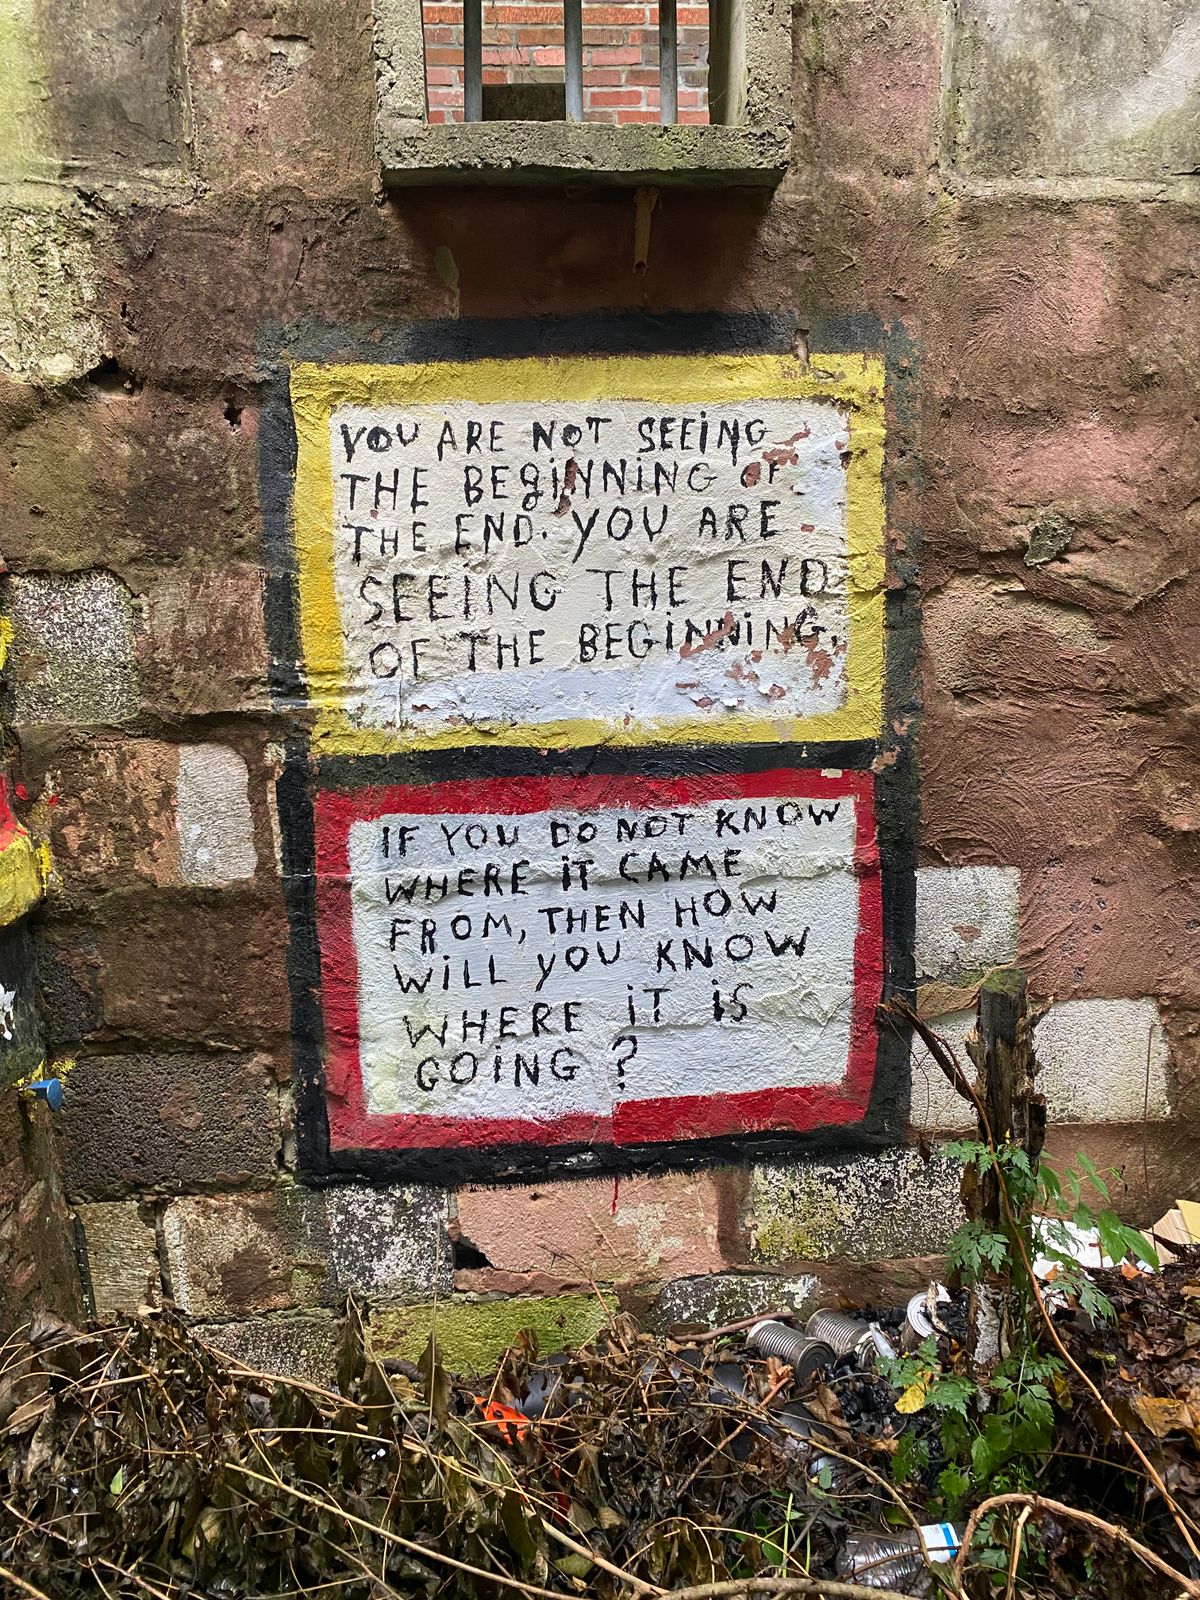 YOU ARE NOT SEEING
THE BEGINNING OF
THE END. YOU ARE
SEEING THE END
OF THE BEGINNING.
IF YOU DO NOT KNOW
WHERE IT CAME
FROM, THEN HOW
WILL YOU KNOW
WHERE IT IS
GOING?